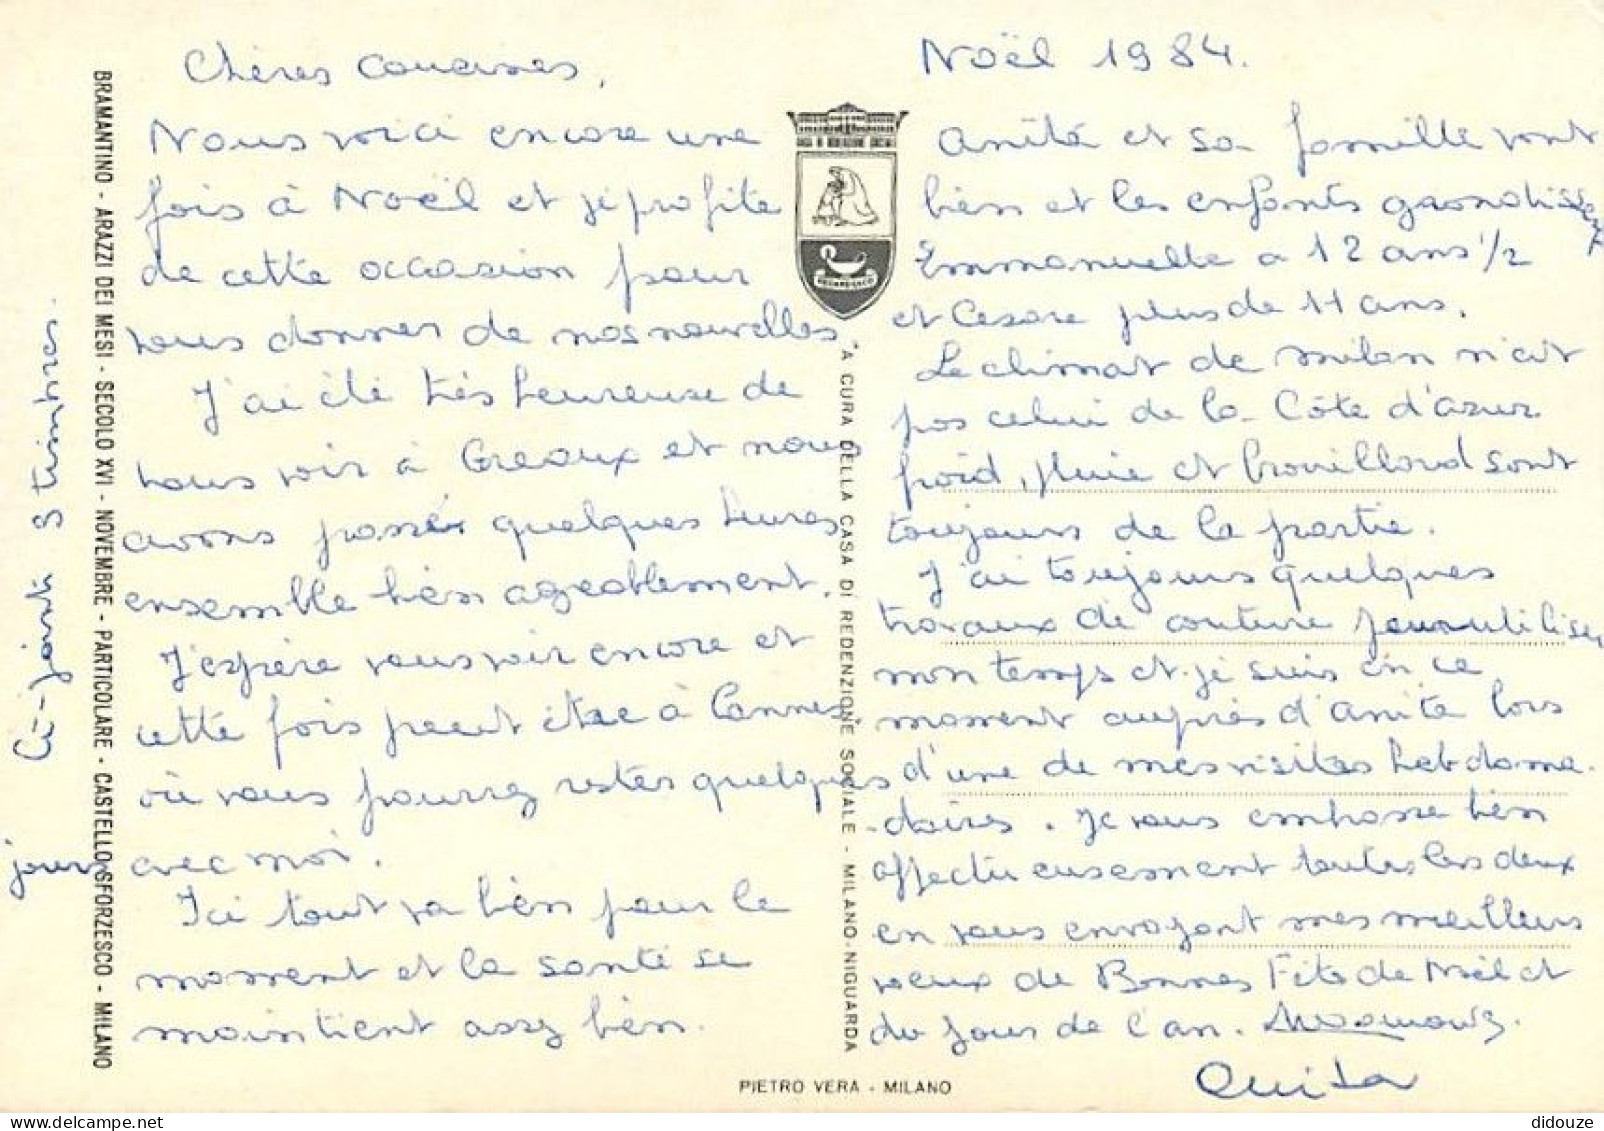 Chères cousines,
Nous voici encore une
fois à Noël et je profite
de cette occasion pour
vous donner de nos nouvelles
J'ai été très heureuse de
vous voir à Gréoux et nous
avons passer quelques heures
ensemble bien agréablement.
J'espère vous voir encore et
cette fois peut être à Cannes
où vous pourrez rester quelques
jours
avec moi.
Ici tout va bien pour le
moment et la santé se
maintient assez bien.
Ci-joint 3 timbres.
BRAMANTINO - ARAZZI DEI MESI - SECOLO XVI - NOVEMBRE - PARTICOLARE - CASTELLO SFORZESCO - MILANO
CASA DI REDENZIONE SOCIALE
"A CURA DELLA CASA DI REDENZIONE SOCIALE - MILANO-NIGUARDA
PIETRO VERA - MILANO
Noël 1984.
Anita et sa famille vont
bien et les enfants grandissent
Emmanuelle a 12 ans 1/2
et Cesare plus de 11 ans.
Le climat de Milan n'est
pas celui de la Côte d'azur
froid, pluie et brouillard sont
toujours de la partie.
J'ai toujours quelques
travaux de couture pour utiliser
mon temps et je suis en ce
moment auprès d'Anita lors
d'une de mes visites hebdoma-
-daires. Je vous embrasse bien
affectueusement toutes les deux
en vous envoyant mes meilleurs
voeux de Bonnes Fête de Noël et
du Jour de l'an.
Anita
didouze